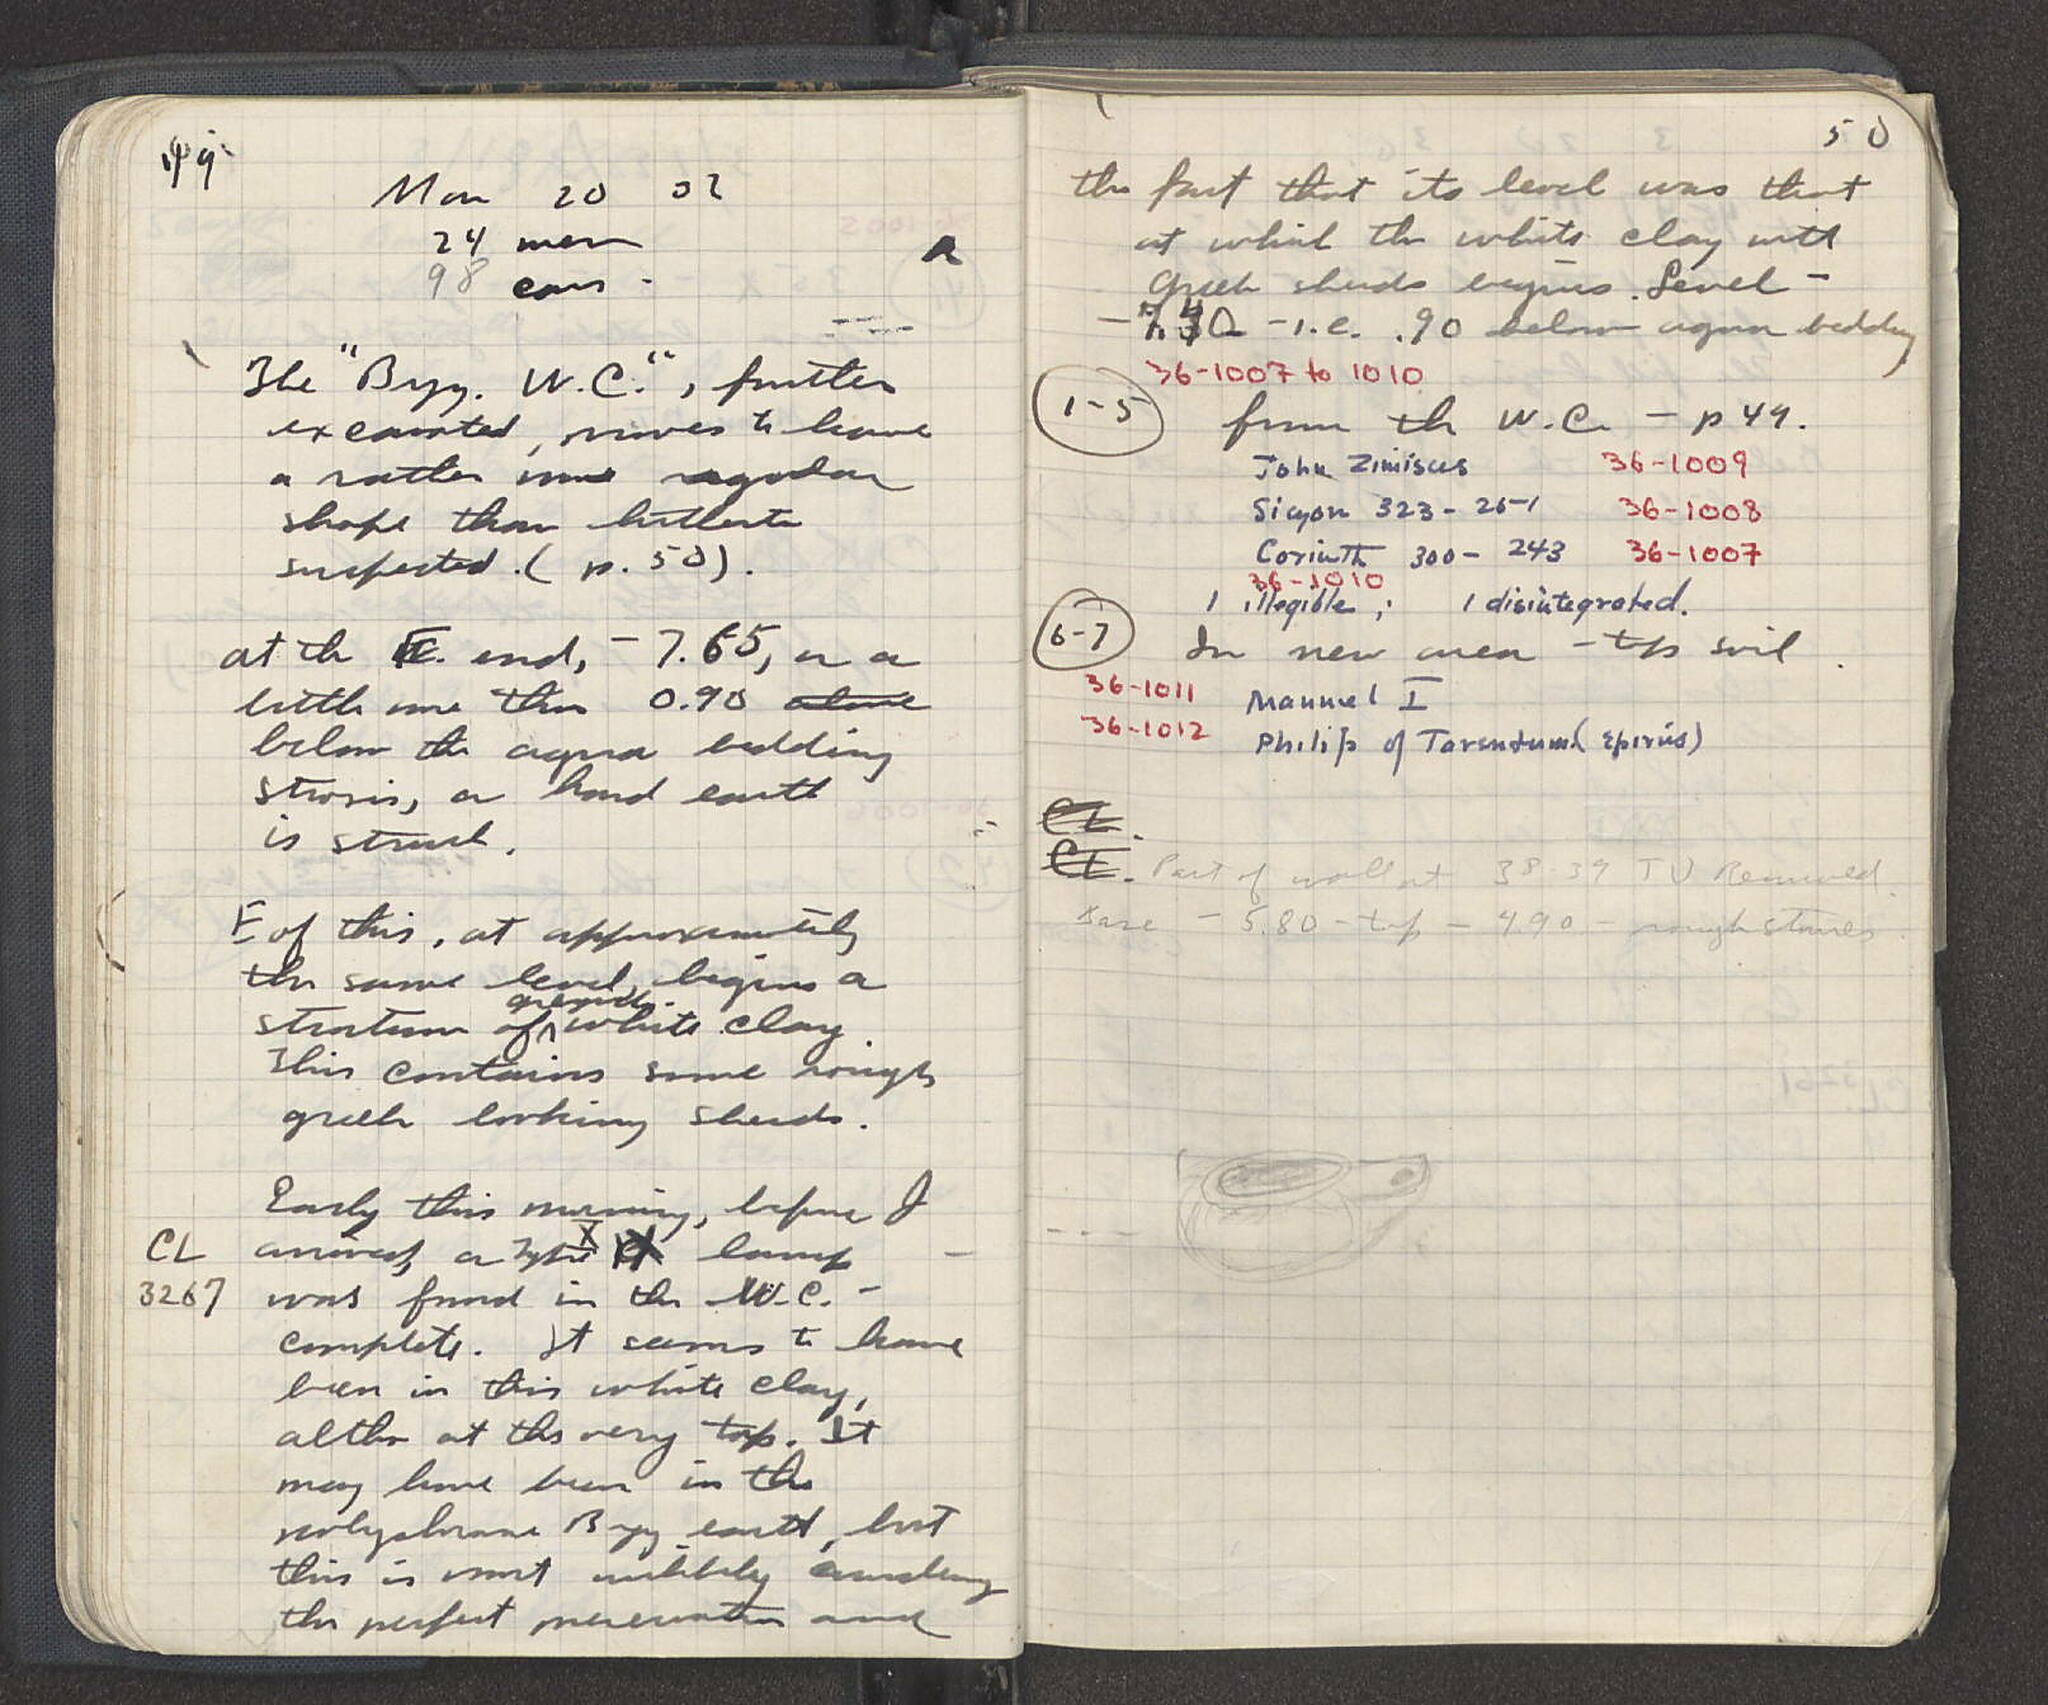 49
Mon 20 02
24 men
98 cars -
A
The "Byz. W.C.", further
excavated, proves to have
a rather more regular
shape than hitherto
suspected. (p. 50).
at the E. end, -7.65, or a
little more than 0.90 above
below the agora bedding
strosis, a hard earth
is struck.
E of this, at approximately
the same level, begins a
greenish
stratum of ^ white clay.
This contains some rough
greek looking sherds.
Early this morning, before I
CL arrived, a Type X lamp -
3267 was found in the W.C. -
complete. It seems to have
been in this white clay,
altho at the very top. It
may have been in the
polychrome Byz earth, but
this is most unlikely considering
the perfect preservation and
50
the fact that its level was that
at which the white clay with
greek sherds begins. Level -
- i.e. .90 below agora bedding
36-1007 to 1010
1-5 from the W.C. - p 49.
John Zimisces 36-1009
Sicyon 323-251 36-1008
Corinth 300-243 36-1007
36-1010
1 illegible; 1 disintegrated.
6-7 In new area - top soil.
36-1011 Mannuel I
36-1012 Philip of Tarentum (Epirus)
CL.
CL. Part of wall at 38-39 TU Removed.
Base -5.80 - top -4.90 - rough stones.